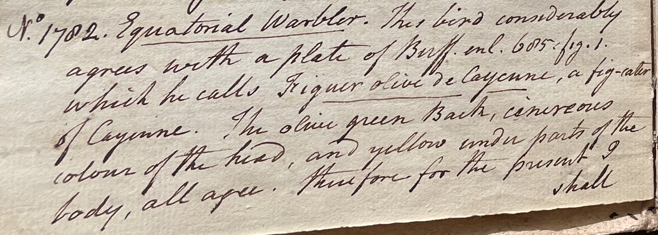 N.º 1782. Equatorial Warbler. This bird considerably
agrees with a plate of Buff. enl. 685. fig. 1.
which he calls Figuier olive de Cayenne, a fig-eater
of Cayenne. The olive green Back, cinereous
colour of the head, and yellow under parts of the
body, all agree. therefore for the present I
shall